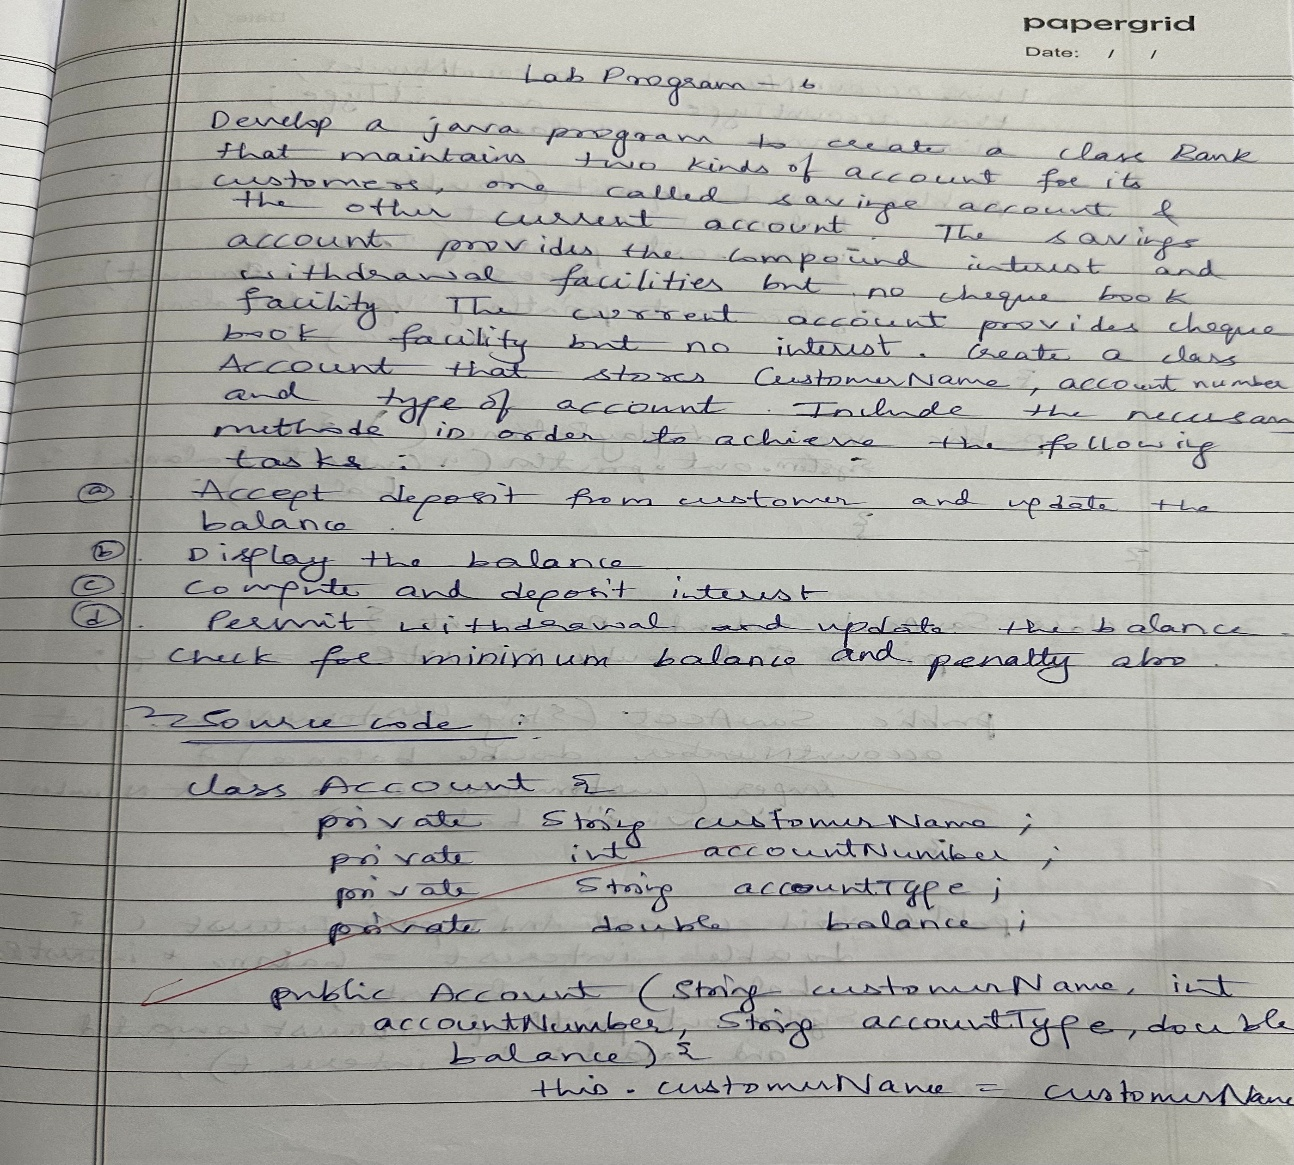 papergrid
Date: / /
Lab Program - 6
Develop a java program to create a class Bank
that maintains two kinds of account for its
customers, one called savings account &
the other current account. The savings
account provides the compound interest and
withdrawal facilities but no cheque book
facility. The current account provides cheque
book facility but no interest. Create a class
Account that stores CustomerName, account number
and type of account. Include the necessary
methods in order to achieve the following
tasks :
(a) Accept deposit from customer and update the
balance.
(b). Display the balance
(c) Compute and deposit interest
(d). Permit withdrawal and update the balance.
Check for minimum balance and penalty also.
Source code :
class Account {
private String customerName ;
private int accountNumber ;
private String accountType ;
private double balance ;
public Account (String customerName, int
accountNumber, String accountType, double
balance) {
this . customerName = customerName